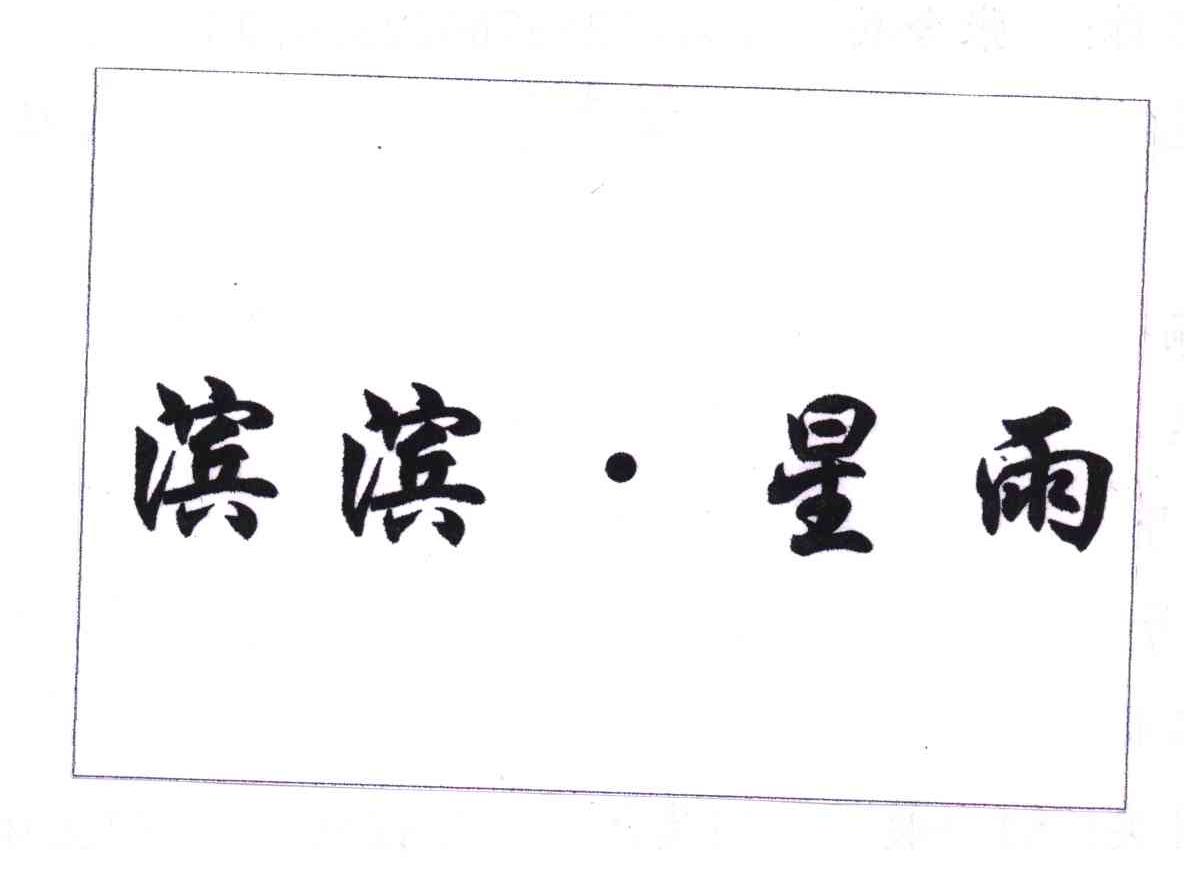 滨滨·星雨